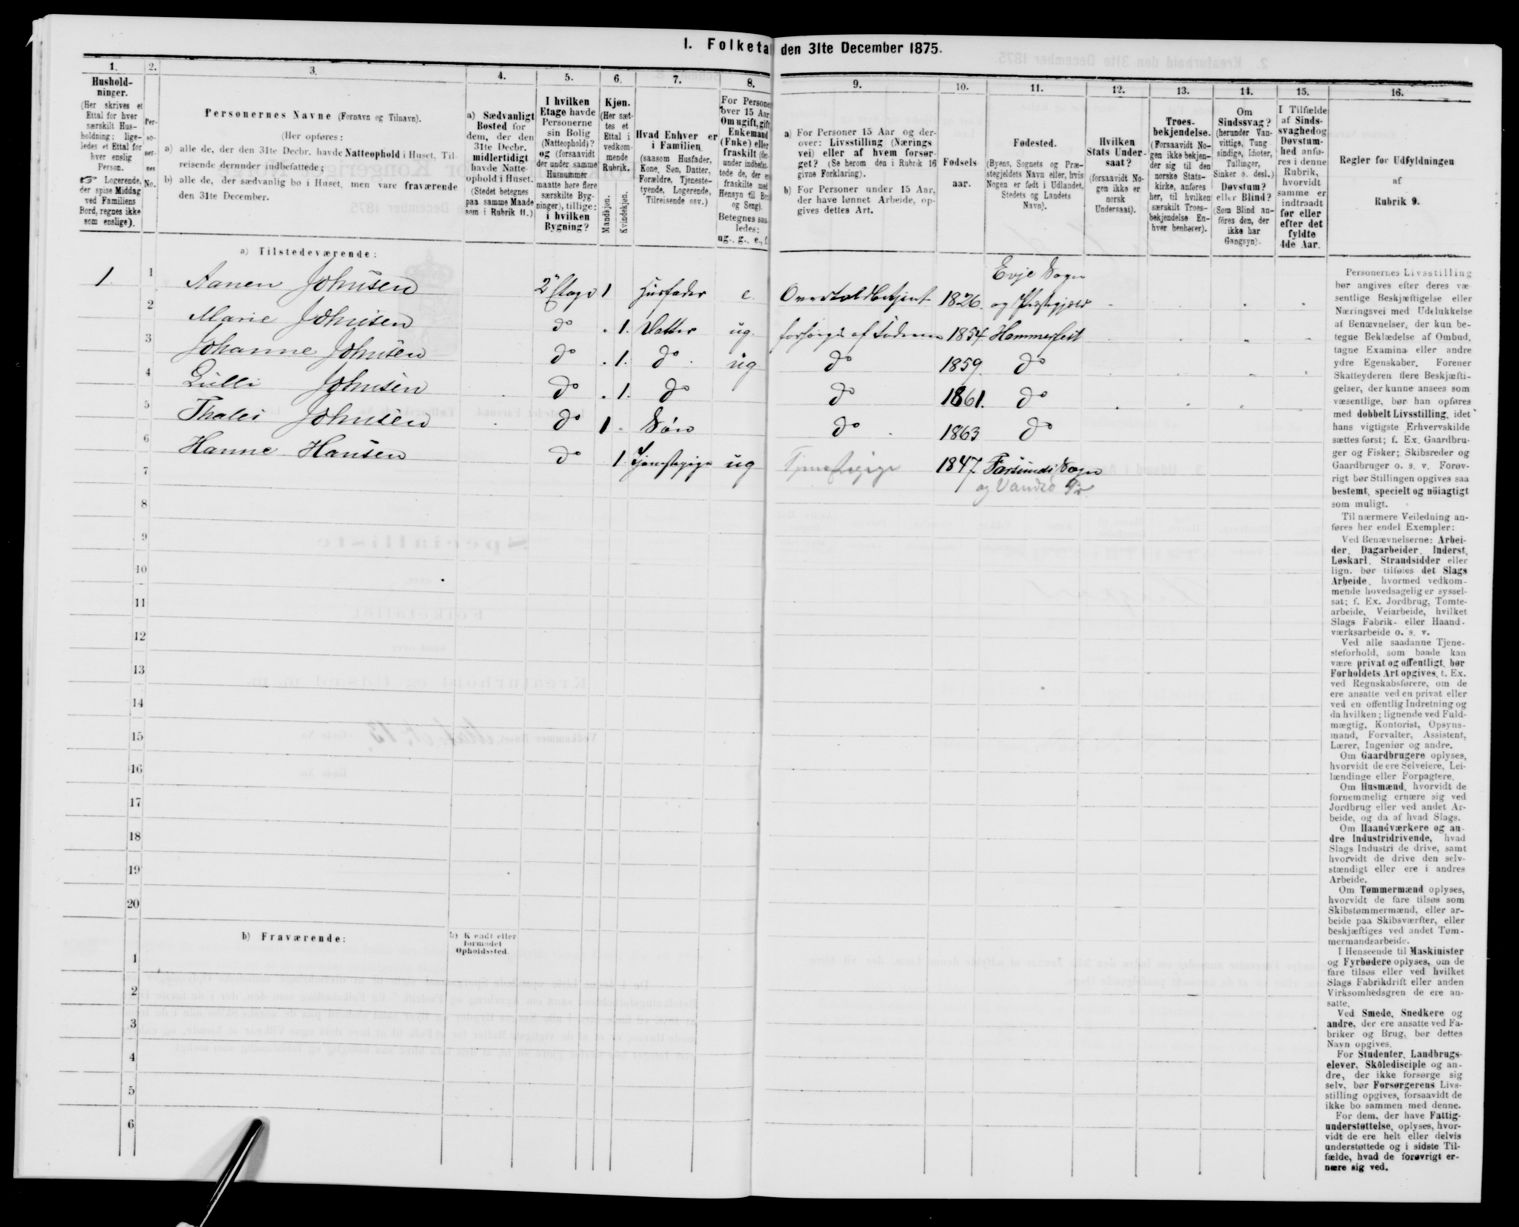 I. Folketal den 31te December 1875.
1.
Hushold-
ninger.
(Her skrives et
Ettal for hver
særskilt Hus-
holdning; lige-
ledes et Ettal for
hver enslig
Person.
☞ Logerende,
der spise Middag
ved Familiens
Bord, regnes ikke
som enslige).
2.
Per-
so-
ner-
nes
No.
3.
Personernes Navne (Fornavn og Tilnavn).
(Her opføres:
a) alle de, der den 31te Decbr. havde Natteophold i Huset, Til-
reisende derunder indbefattede;
b) alle de, der sædvanlig bo i Huset, men vare fraværende
den 31te December.
4.
a) Sædvanligt
Bosted for
dem, der den
31te Decbr.
midlertidigt
havde Natte-
ophold i Huset.
(Stedet betegnes
paa samme Maade
som i Rubrik 11.)
5.
I hvilken
Etage havde
Personerne
sin Bolig
(Natteophold)?
og (forsaavidt
der under samme
Husnummer
maatte høre flere
særskilte Byg-
ninger), tillige:
i hvilken
Bygning?
6.
Kjøn.
(Her sæt-
tes et
Ettal i
vedkom-
mende
Rubrik.
Mandkjøn.
Kvindekjøn.
7.
Hvad Enhver er
i Familien
(saasom Husfader,
Kone, Søn, Datter,
Forældre, Tjeneste-
tyende, Logerende,
Tilreisende osv.)
8.
For Personer
over 15 Aar:
Om ugift, gift,
Enkemand
(Enke) eller
fraskilt
Betegnes saa-
ledes:
ug., g., e., f.
9.
a) For Personer 15 Aar og der-
over: Livsstilling (Nærings-
vei) eller af hvem forsør-
get? (Se herom den i Rubrik 16
givne Forklaring).
b) For Personer under 15 Aar,
der have lønnet Arbeide, op-
gives dettes Art.
10.
Fødsels
aar.
11.
Fødested.
(Byens, Sognets og Præ-
stegjeldets Navn eller, hvis
Nogen er født i Udlandet,
Stedets og Landets
Navn).
12.
Hvilken
Stats Under-
saat?
(forsaavidt No-
gen ikke er
norsk
Undersaat).
13.
Troes-
bekjendelse.
(Forsaavidt No-
gen ikke bekjen-
der sig til den
norske Stats-
kirke, anføres
her, til hvilken
særskilt Troes-
bekjendelse En-
hver henhører).
14.
Om
Sindssvag?
(herunder Van-
vittige, Tung-
sindige, Idioter,
Tullinger,
Sinker o. desl.)
Døvstum?
eller Blind?
(Som Blind an-
føres den, der
ikke har
Gangsyn).
15.
I Tilfælde
af Sinds-
svaghed og
Døvstum-
hed anfø-
res i denne
Rubrik,
hvorvidt
samme er
indtraadt
før eller
efter det
fyldte
4de Aar.
16.
Regler for Udfyldningen
af
Rubrik 9.
a) Tilstedeværende:
1 1 Aanen Johnsen 2 Etage 1 Husfader e. Overtoldbetjent 1826 Evje Sogn og Præstegjeld
2 Marie Johnsen do 1. Datter ug. forsørges af Faderen 1854 Hammerfest
3 Johanne Johnsen do 1. do ug do 1859. do
4 Lulli Johnsen do 1. do do 1861. do
5 Thalis Johnsen do 1 Søn do 1863 do
6 Hanne Hansen do 1 Tjenestepige ug Tjenestepige 1847. Farsunds Sogn
og Vandsø Pr.
7
8
9
10
11
12
13
14
15
16
17
18
19
20
b) Fraværende:
b) Kjendt eller
formodet
Opholdssted.
1
2
3
4
5
6
Personernes Livsstilling
bør angives efter deres væ-
sentlige Beskjæftigelse eller
Næringsvei med Udelukkelse
af Benævnelser, der kun be-
tegne Beklædelse af Ombud,
tagne Examina eller andre
ydre Egenskaber. Forener
Skatteyderen flere Beskjæfti-
gelser, der kunne ansees som
væsentlige, bør han opføres
med dobbelt Livsstilling, idet
hans vigtigste Erhvervskilde
sættes først; f. Ex. Gaardbru-
ger og Fisker; Skibsreder og
Gaardbruger o. s. v. Forøv-
rigt bør Stillingen opgives saa
bestemt, specielt og nøiagtigt
som muligt.
Til nærmere Veiledning an-
føres her endel Exempler:
Ved Benævnelserne: Arbei-
der, Dagarbeider, Inderst,
Løskarl, Strandsidder eller
lign. bør tilføies det Slags
Arbeide, hvormed vedkom-
mende hovedsagelig er syssel-
sat; f. Ex. Jordbrug, Tomte-
arbeide, Veiarbeide, hvilket
Slags Fabrik- eller Haand-
værksarbeide o. s. v.
Ved alle saadanne Tjene-
steforhold, som baade kan
være privat og offentligt, bør
Forholdets Art opgives, f. Ex.
ved Regnskabsførere, om de
ere ansatte ved en privat eller
ved en offentlig Indretning og
da hvilken; lignende ved Fuld-
mægtig, Kontorist, Opsyns-
mand, Forvalter, Assistent,
Lærer, Ingeniør og andre.
Om Gaardbrugere oplyses,
hvorvidt de ere Selveiere, Lei-
lændinge eller Forpagtere.
Om Husmænd, hvorvidt de
fornemmelig ernære sig ved
Jordbrug eller ved andet Ar-
beide, og da af hvad Slags.
Om Haandværkere og an-
dre Industridrivende, hvad
Slags Industri de drive, samt
hvorvidt de drive den selv-
stændigt eller ere i andres
Arbeide.
Om Tømmermænd oplyses,
hvorvidt de fare tilsøs som
Skibstømmermænd, eller ar-
beide paa Skibsværfter, eller
beskjæftiges ved andet Tøm-
mermandsarbeide.
I Henseende til Maskinister
og Fyrbødere oplyses, om de
fare tilsøs eller ved hvilket
Slags Fabrikdrift eller anden
Virksomhedsgren de ere an-
satte.
Ved Smede, Snedkere og
andre, der ere ansatte ved Fa-
briker og Brug, bør dettes
Navn opgives.
For Studenter, Landbrugs-
elever, Skoledisciple og an-
dre, der ikke forsørge sig
selv, bør Forsørgerens Livs-
stilling opgives, forsaavidt de
ikke bo sammen med denne.
For dem, der have Fattig-
understøttelse, oplyses, hvor-
vidt de ere helt eller delvis
understøttede og i sidste Til-
fælde, hvad de forøvrigt er-
nære sig ved.